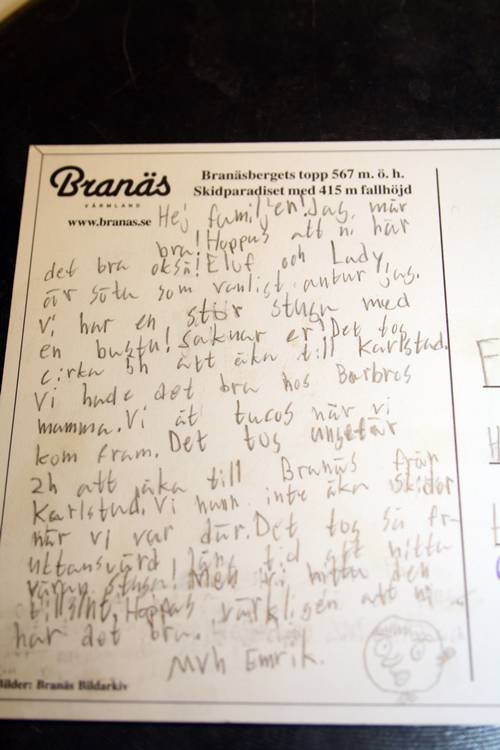 Branäs
VÄRMLAND
www.branas.se
Branäsbergets topp 567 m. ö. h.
Skidparadiset med 415 m fallhöjd
Hej familjen! Jag mår
bra! Hoppas att ni har
det bra också! Elof och Lady,
är söta som vanligt antar jag.
Vi har en stor stuga med
en bastu! Saknar er! Det tog
cirka 5h att åka till Karlstad.
Vi hade det bra hos Barbros
mamma. Vi åt tacos när vi
kom fram. Det tog ungefär
2h att åka till Branäs från
Karlstad. Vi hann inte åka skidor
när vi var där. Det tog så fr-
uktansvärd lång tid att hitta
våran stuga! Men vi hitta den
till slut. Hoppas värkligen att ni
har det bra.
Mvh Emrik.
Bilder: Branäs Bildarkiv